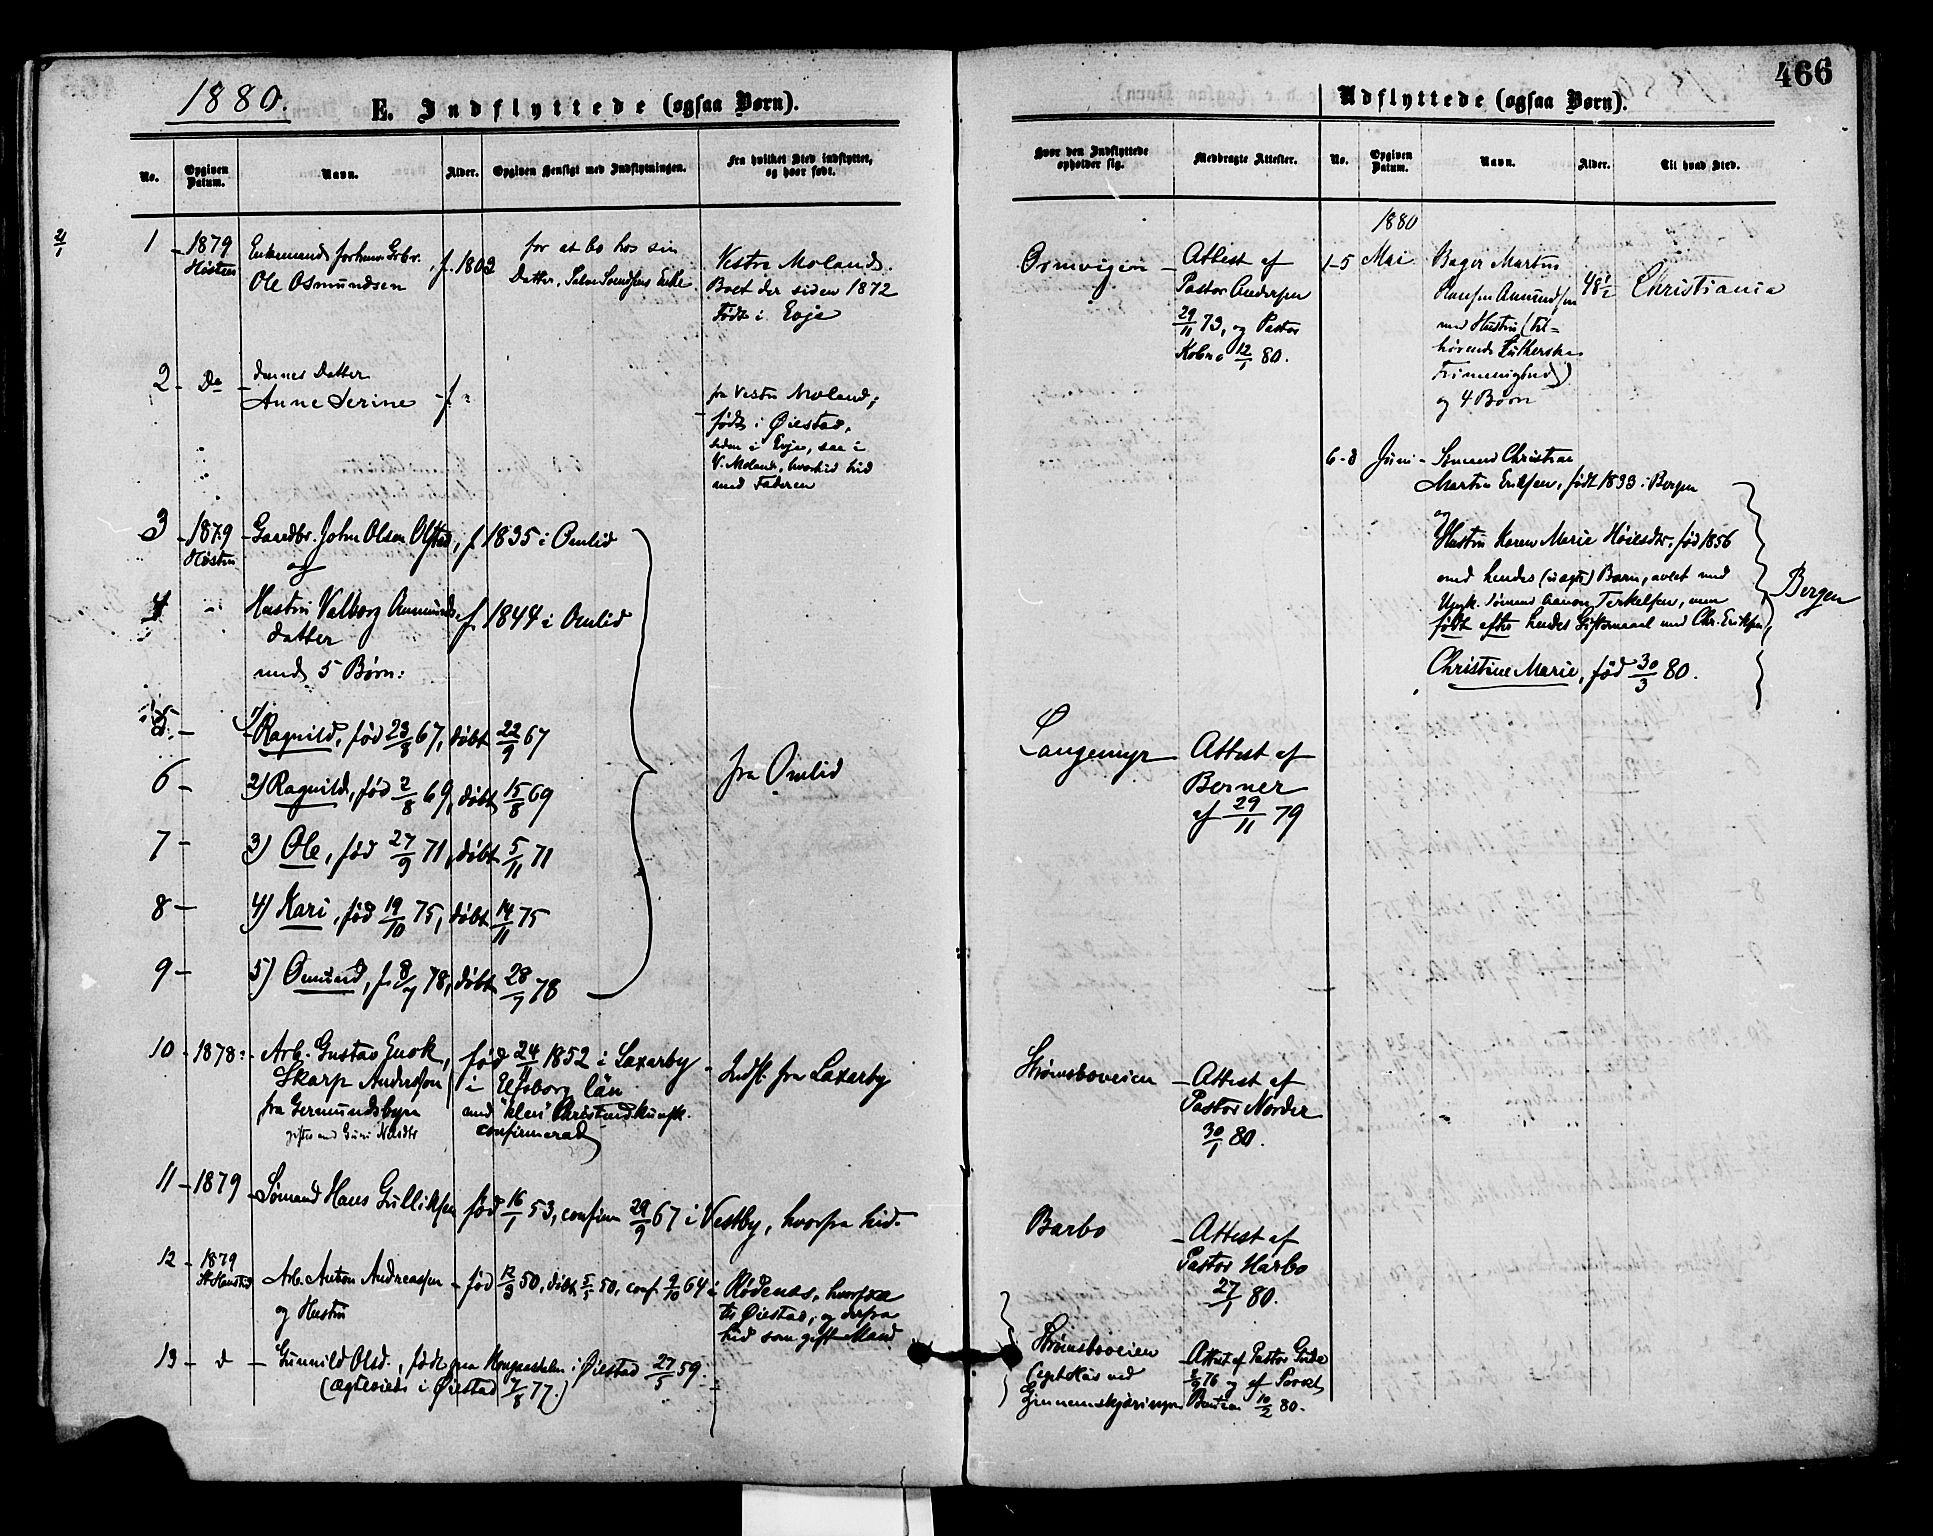 466
1880.
E. Indflyttede (ogsaa Børn).
No.
Opgiven Datum.
Navn.
Alder.
Opgiven Hensigt med Indflytningen.
Fra hvilket Sted indflyttet, og hvor født.
Hvor den Indflyttede opholder sig.
Medbragte Attester.
21/1
1 - 1879 Høsten
Enkemand forhenv. Grbr.
Ole Osmundsen
f. 1802
for at bo hos sin
Datter,
Enke
Vestre Moland.
Boet der siden 1872
Født i Evje
Attest af
Pastor Andersen
29/11 73, og Pastor
12/1 80.
2 - Do - dennes Datter
Anne Serine - f.
fra Vestre Moland,
født i Øiestad,
siden i Evje, saa i
V. Moland, hid
med Faderen
3 - 1879 Høsten
Gaardbr. John Olsen, f. 1835 i Omlid
og
4 - Hustru Valborg Aanunds-
datter
f. 1844 i Omlid
med 5 Børn:
5 - 1) Ragnild, fød 23/8 67, døbt 22/9 67
6 - 2) Ragnild, fød 2/8 69, døbt 15/8 69
7 - 3) Ole, fød 27/9 71, døbt 5/11 71
8 - 4) Kari, fød 19/10 75, døbt 14/11 75
9 - 5) Omund, f. 8/7 78, døbt 28/7 78
fra Omlid
Langemyr - Attest af
Berner
af 29/11 79
10 - 1878 - Arb. Gustav Enok,
Skarp Andersson
fra Germundsbyn
gift med
fød 24/11 1852 i Laxarby
i Elfsborg län
med "klen" Christendkunsk.
confirmerad
Indfl. fra Laxarby
Strømsboveien - Attest af
Pastor Norder
30/1 80.
11 - 1879 - Sømand Hans Gulliksen fød 16/1 53, confirm 29/9 67 i Vestby, hvorfra hid.
Barbo - Attest af
Pastor Harbo
27/1 80.
12 - 1879
Arb. Anton Andreassen - fød 12/3 50, døbt 5/5 50, conf. 9/10 64 i Rødenes, hvorfra
og Hustru
til Øiestad, og derfra
hid som gift Mand
13 - d - Gunnild Olsd., født paa i Øiestad 27/5 59.
(ægteviede i Øiestad 7/8 77.)
Strømsboveien
ved
Gjennemskjæringen
Attest af Pastor
76 og af
10/2 80.
Udflyttede (ogsaa Børn).
No.
Opgiven Datum.
Navn.
Alder.
Til hvad Sted.
1880
1-5 Mai
Bager Martin
Hansen Amundsen
med Hustru (til-
hørende Lutherske
Frimenighed)
og 4 Børn
48 1/2
Christiania
6-8 Juni - Sømand Christian
Martin Eriksen, født 1833 i Bergen
og
Hustru Karen Marie, fød 1856
med hendes (uægte) Barn, avlet med
Ungk. Sømand Aanon Terkelsen, men
født efter hendes Giftermaal med Chr. Eriksen,
Christine Marie, fød 30/3 80.
Bergen